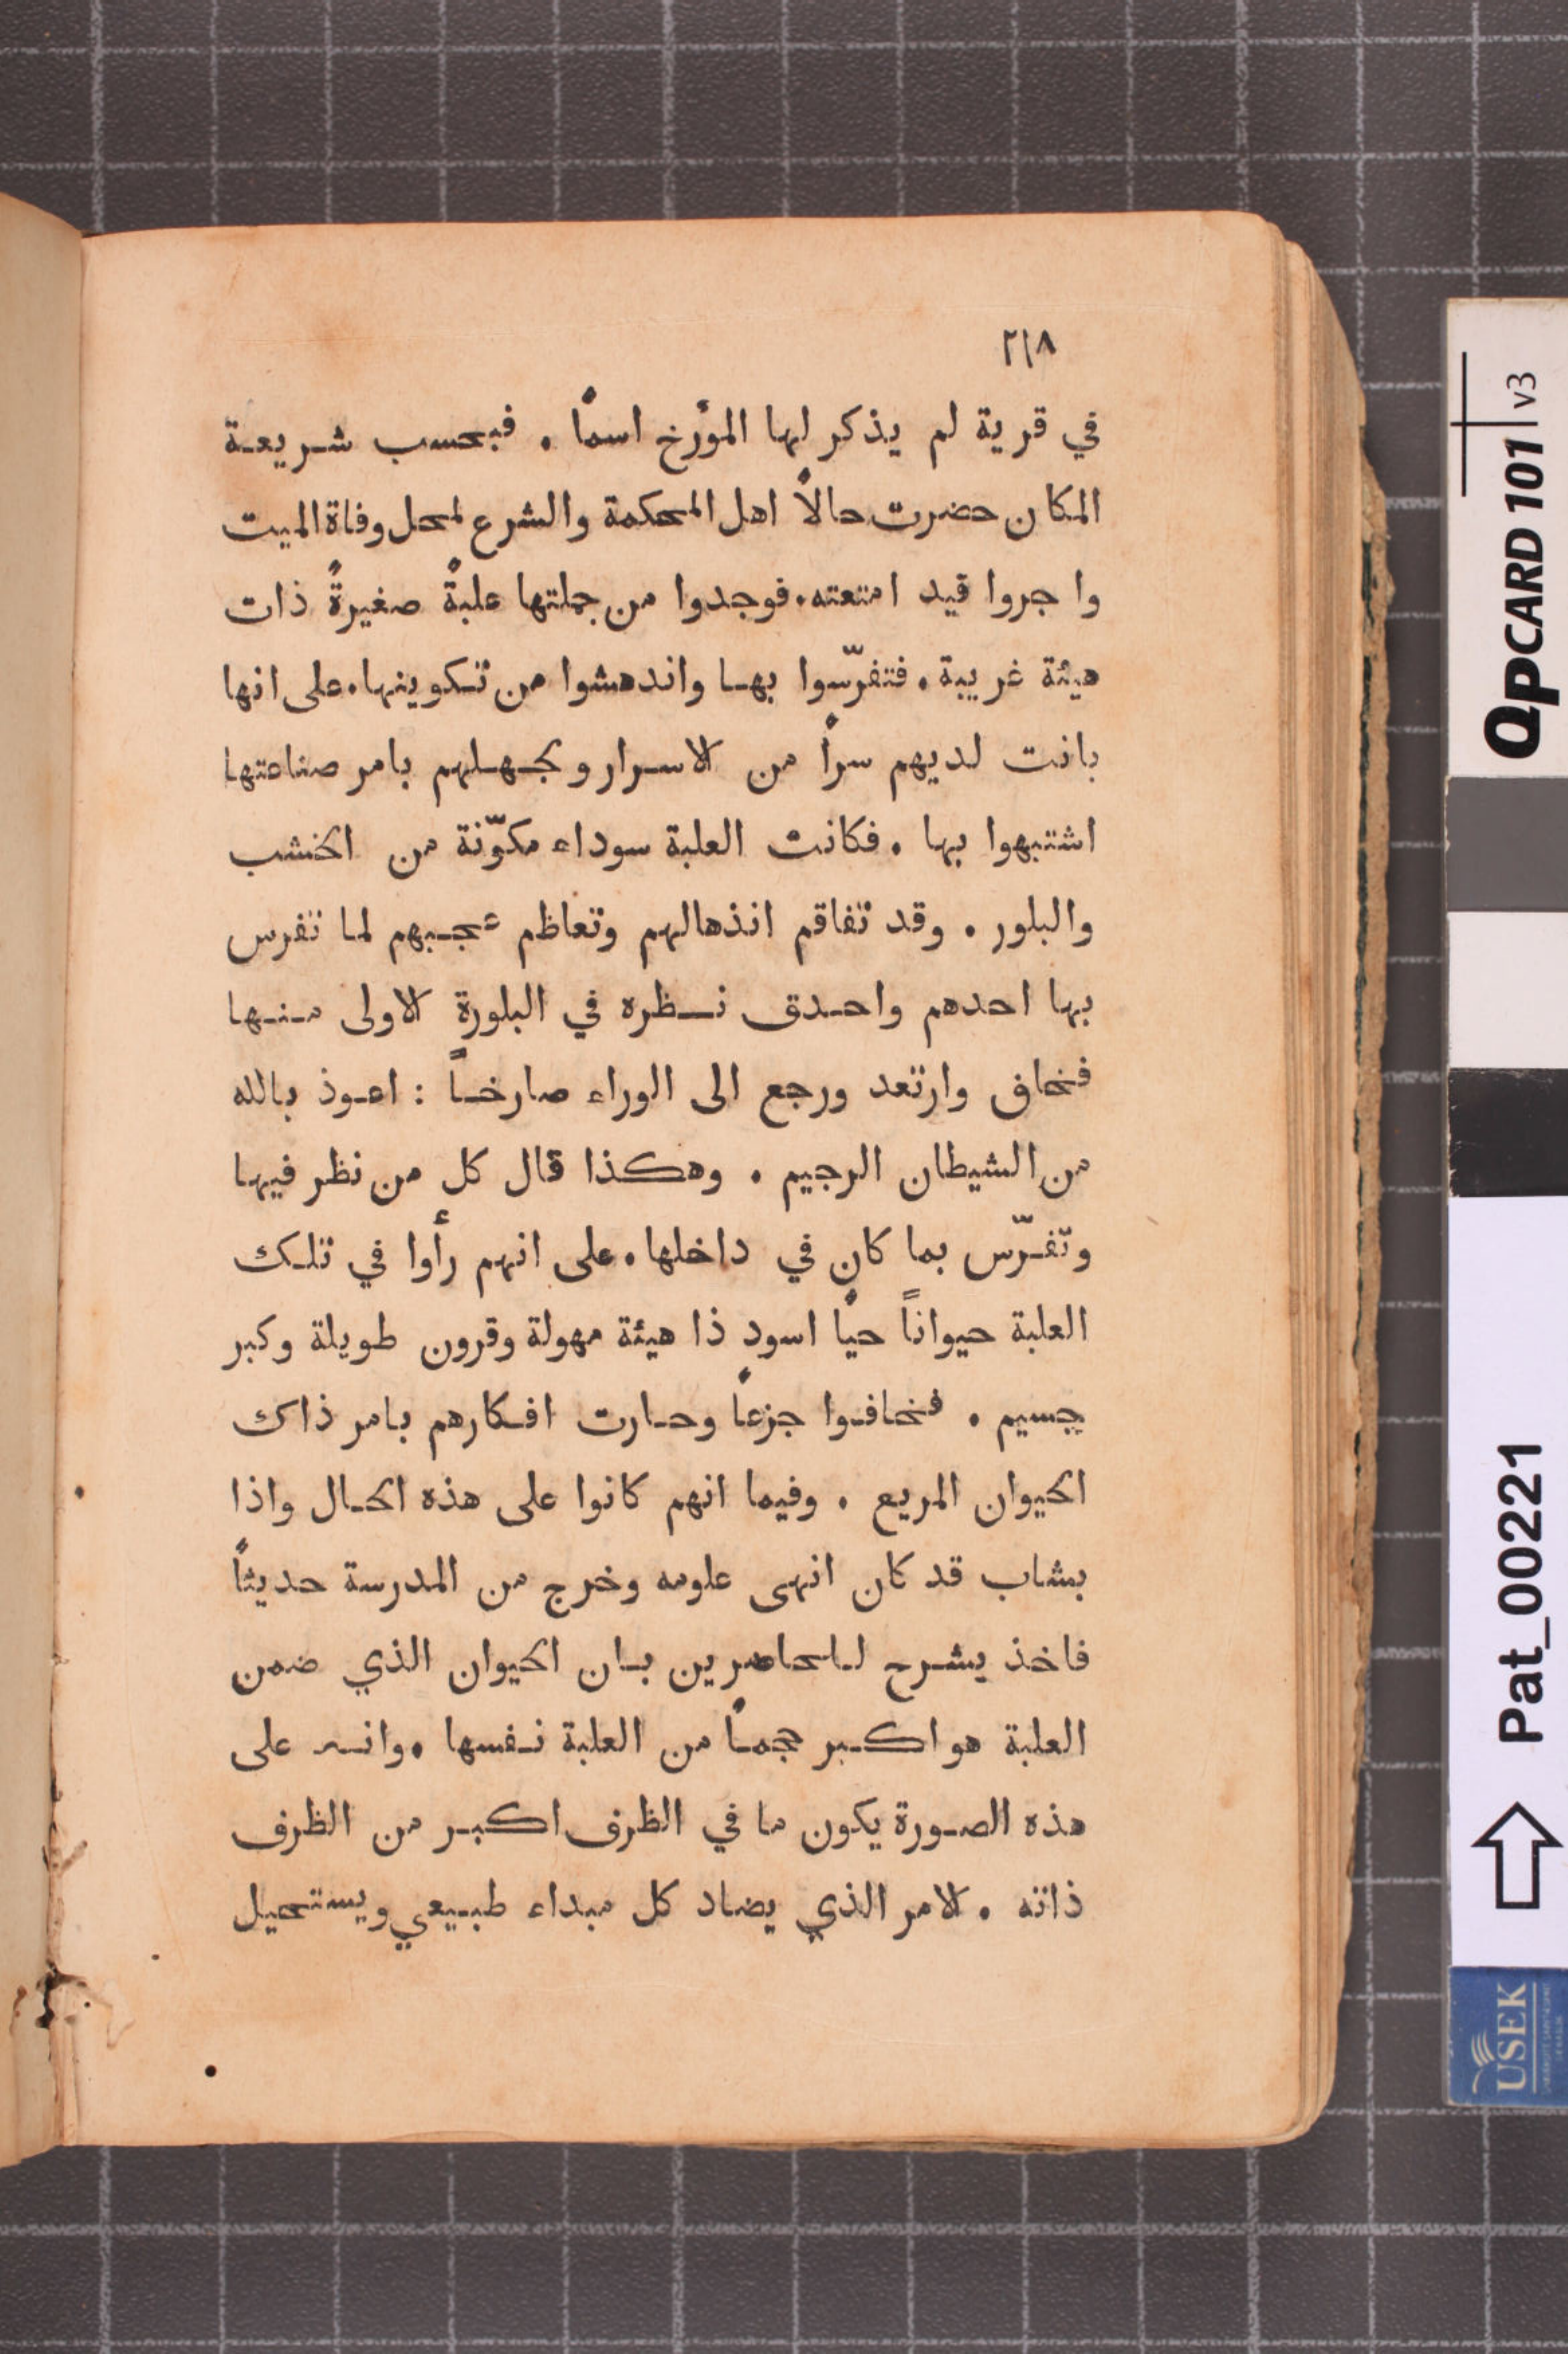 ٢١٨
في قرية لم يذكر لها المؤرخ اسمًا . فبحسب شريعة
المكان حضرت حالاً اهل المحكمة والشرع لمحل وفاة الميت
واجروا قيد امتعته . فوجدوا من جملتها علبةً صغيرةً ذات
هيئة غريبة . فتفرّسوا بها واندهشوا من تكوينها . على انها
بانت لديهم سراً من الاسرار وبجهلهم بامر صناعتها
اشتبهوا بها . فكانت العلبة سوداء مكوّنة من الخشب
والبلور . وقد تفاقم انذهالهم وتعاظم عجبهم لما تفرس
بها احدهم واحدق نظره في البلورة الاولى منها
فخاف وارتعد ورجع الى الوراء صارخاً : اعوذ بالله
من الشيطان الرجيم . وهكذا قال كل من نظر فيها
وتفرّس بما كان في داخلها . على انهم رأوا في تلك
العلبة حيواناً حيًا اسود ذا هيئة مهولة وقرون طويلة وكبر
جسيم . فخافوا جزعاً وحارت افكارهم بامر ذاك
الحيوان المريع . وفيما انهم كانوا على هذه الحال واذا
بشاب قد كان انهى علومه وخرج من المدرسة حديثاً
فاخذ يشرح للحاضرين بان الحيوان الذي ضمن
العلبة هو اكبر حجماً من العلبة نفسها . وانه على
هذه الصورة يكون ما في الظرف اكبر من الظرف
ذاته . الامر الذي يضاد كل مبداء طبيعي ويستحيل
QPCARD 101 v3
Pat_00221
USEK